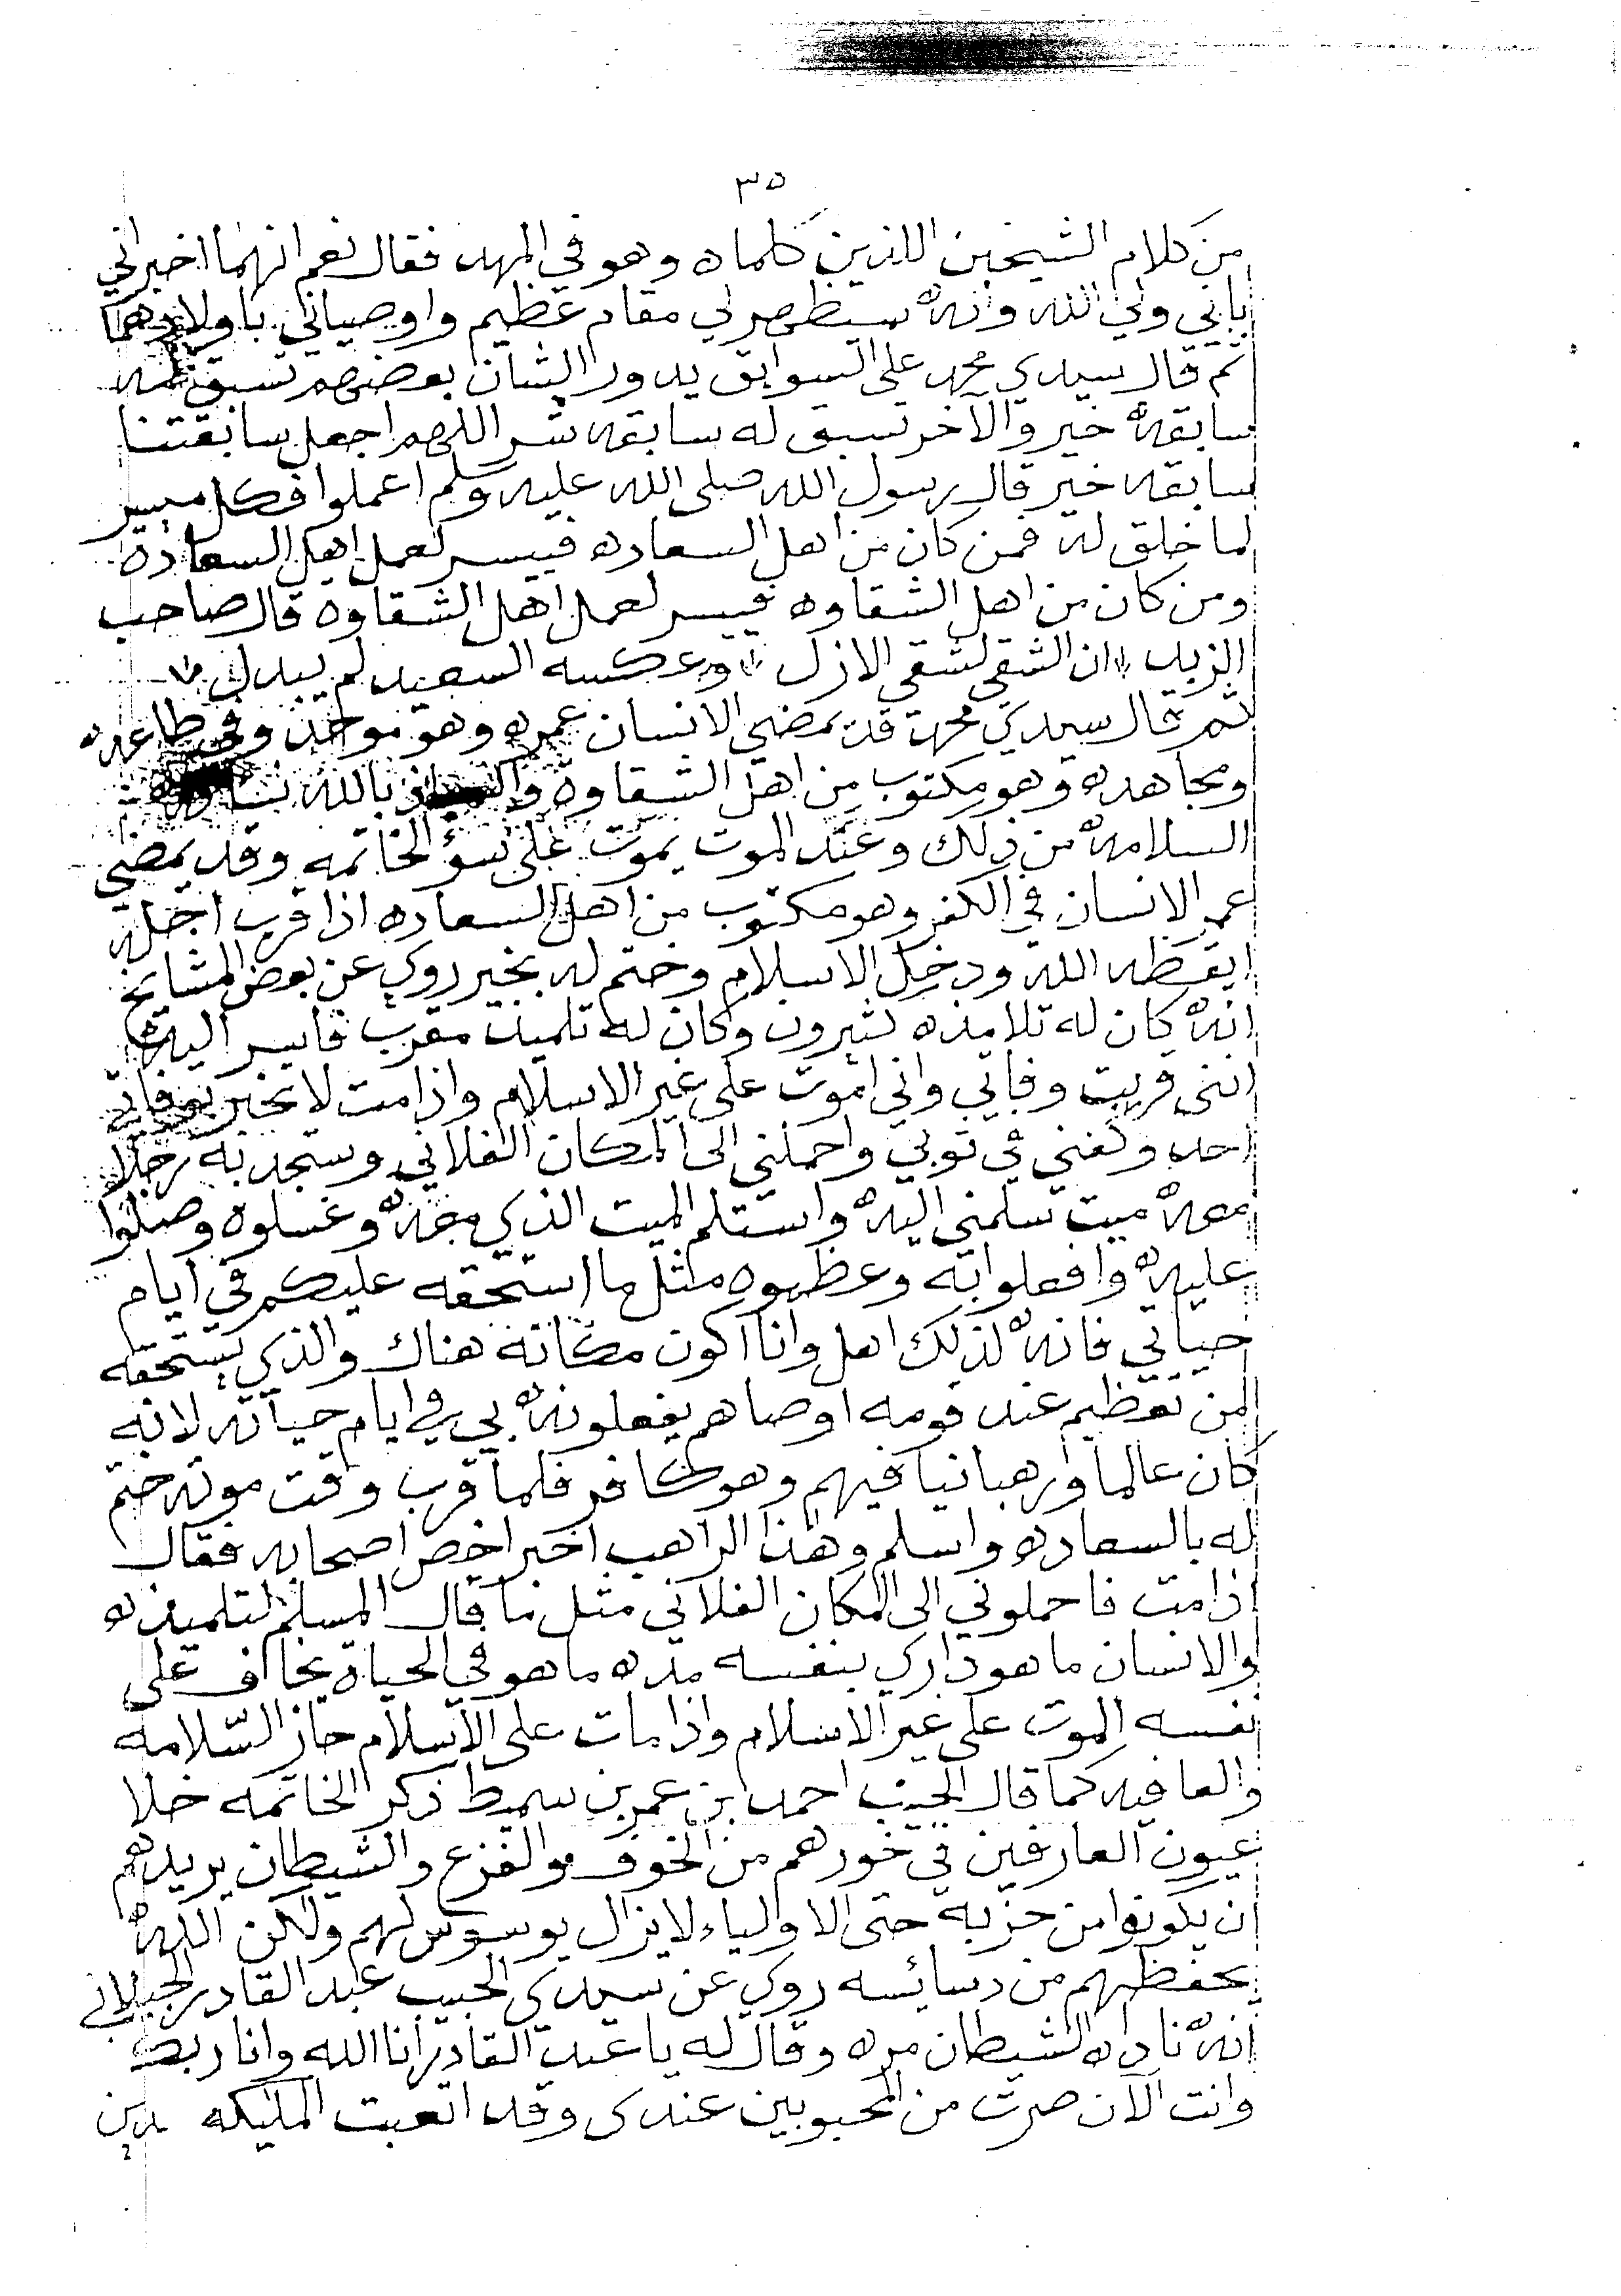 ٣٥
من كلام الشيخين اللذين كلماه وهو في المهد فقال نعم انهما اخبراني
باني ولي الله وانه سيظهر لي مقام عظيم واوصياني باولادهما
ثم قال سيدي محمد على السوابق يدور الشان بعضهم تسبق له
سابقة خير والآخر تسبق له سابقه شر اللهم اجعل سابقتنا
سابقه خير قال رسول الله صلى الله عليه وسلم اعملوا فكل ميسر
لما خلق له فمن كان من اهل السعاده فييسر لعمل اهل السعادة
ومن كان من اهل الشقاوه فييسر لعمل اهل الشقاوه قال صاحب
الزبد ان الشقي لشقي الازل وعكسه السعيد لم يبدل
ثم قال سيدي محمد قد يمضي الانسان عمره وهو موحد وفي طاعه
ومجاهده وهو مكتوب من اهل الشقاوة بالله
السلامة من ذلك وعند الموت يموت على سؤ الخاتمه وقد يمضي
عمر الانسان في الكفر وهو مكتوب من اهل السعاده اذا قرب اجله
ايقظه الله ودخل الاسلام وختم له بخير روي عن بعض المشايخ
انه كان له تلامذه كثيرون وكان له تلميذ مقرب فاسر اليه
انني قربت وفاتي واني اموت على غير الاسلام واذا مت لا تخبر بوفاتي
احد وكفني في ثوبي واحملني الى المكان الفلاني وستجد به رجلا
معه ميت سلمني اليه واستلم الميت الذي معه وغسلوه وصلوا
عليه وافعلوا به وعظموه مثل ما استحقه عليكم في ايام
حياتي فانه لذلك اهل وانا اكون مكانه هناك والذي يستحقه
من تعظيم عند قومه اوصاهم يفعلونه بي في ايام حياته لانه
كان عالما ورهبانيا فيهم وهو كافر فلما قرب وقت موته ختم
له بالسعاده واسلم وهذا الراهب اخبر اخص اصحابه فقال
اذا مت فاحملوني الى المكان الفلاني مثل ما قال المسلم لتلميذه
والانسان ما هو داري بنفسه مده ما هو في الحياة يخاف على
نفسه الموت على غير الاسلام واذا مات على الاسلام حاز السلامه
والعافيه كما قال الحبيب احمد ابن عمر بن سميط ذكر الخاتمه خلا
عيون العارفين في خورهم من الخوف والفزع والشيطان يريدهم
ان يكونوا من حزبه حتى الاولياء لا يزال يوسوس لهم ولكن الله
يحفظهم من دسائسه روي عن سيدي الحبيب عبد القادر الجيلاني
انه ناداه الشيطان مره وقال له يا عبد القادر انا الله وانا ربك
وانت الآن صرت من المحبوبين عندى وقد اتعبت المليكه